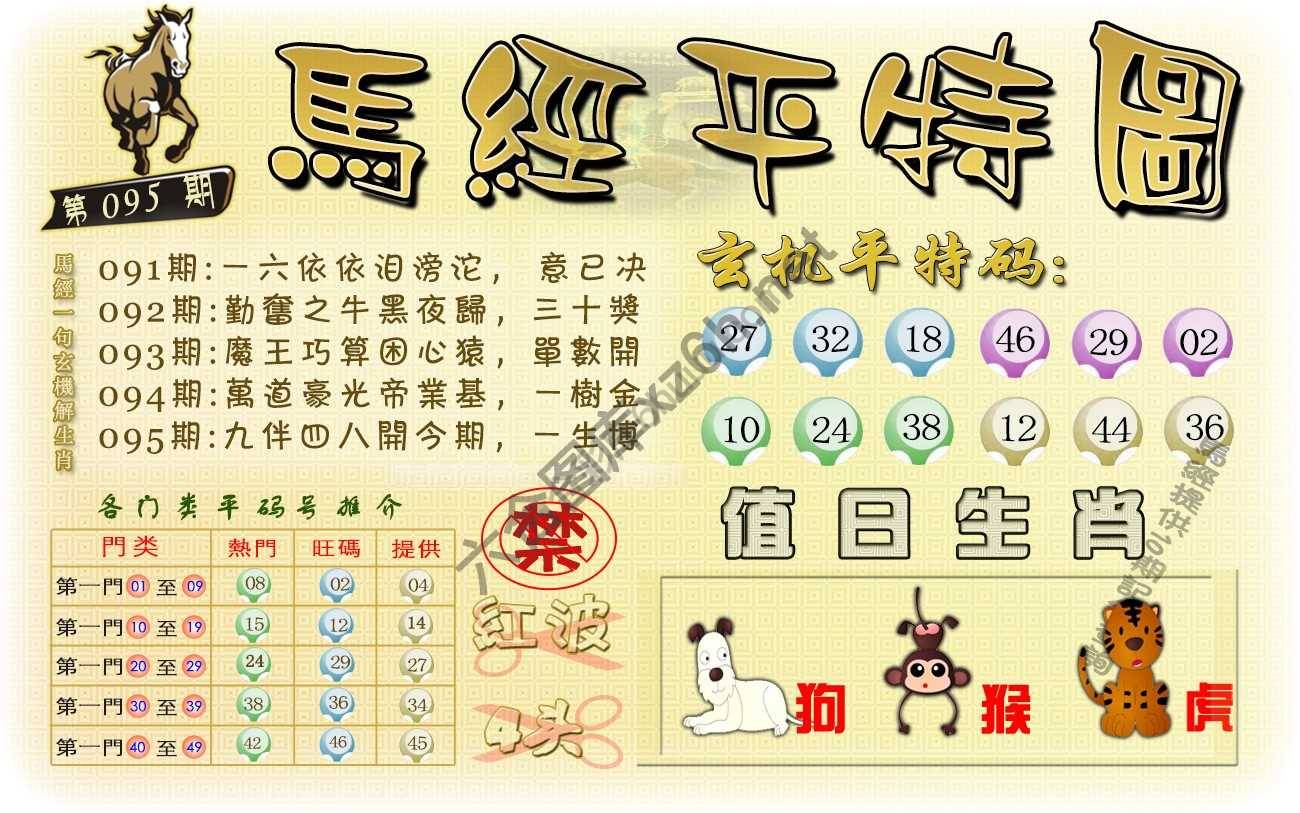 馬經平特圖
第095期
馬經一句玄機解生肖
091期:一六依依泪滂沱，意已决
092期:勤奮之牛黑夜歸，三十獎
093期:魔王巧算困心猿，單數開
094期:萬道豪光帝業基，一樹金
095期:九伴四八開今期，一生博
玄机平特码:
27 32 18 46 29 02
10 24 38 12 44 36
各门类平码号推介
門类 熱門 旺碼 提供
第一門 01 至 09 08 02 04
第一門 10 至 19 15 12 14
第一門 20 至 29 24 29 27
第一門 30 至 39 38 36 34
第一門 40 至 49 42 46 45
禁
紅波
4头
值日生肖
狗 猴 虎
六合图库xxz6b.net